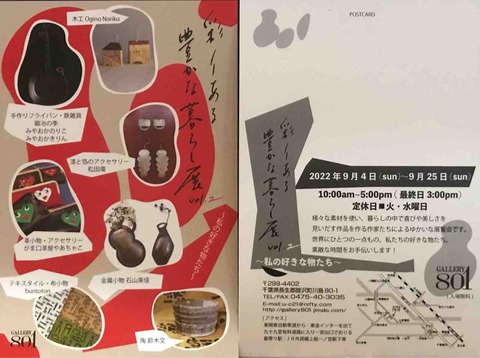 木工 Ogino Noriko
彩りある
豊かな暮らし展
vol.2
〜私の好きな物たち〜
手作りフライパン・鉄雑貨
鍛冶の季
みやおかのりこ
みやおかきりん
漆と箔のアクセサリー
松田環
革小物・アクセサリー
がま口革屋やあちゃこ
テキスタイル・布小物
buntoton
金属小物 石山美佳
陶 鈴木文
GALLERY
801
POSTCARD
彩りある
豊かな暮らし展
vol.2
2022年9月4日(sun)〜9月25日(sun)
10:00am~5:00pm(最終日3:00pm)
定休日■火・水曜日
様々な素材を使い、暮らしの中で喜びや美しさを
見いだす作品を作る作家たちによるゆかいな展覧会です。
世界にひとつの一点もの。私たちの好きな物たち。
素敵な時間をお手伝いします!
〜私の好きな物たち〜
〒299-4402
千葉県長生郡睦沢町川島 80-1
TEL/FAX:0475-40-3035
E-mail:u-c21@nifty.com
http://gallery801.jimdo.com/
GALLERY
801
[入場無料]
[アクセス]